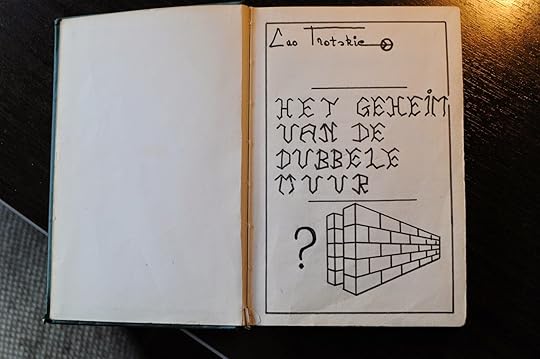 Leo Trotskie
HET GEHEIM
VAN DE
DUBBELE
MUUR
?